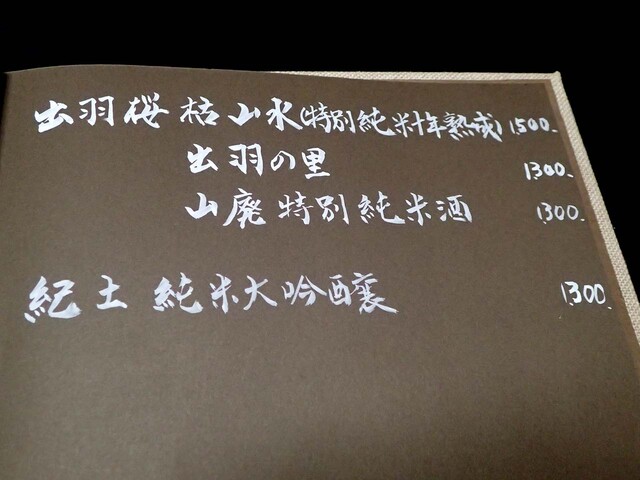 出羽桜 枯山水(特別純米十年熟成) 1500.
出羽の里 1300.
山廃 特別純米酒 1300.
紀土 純米大吟醸 1300.